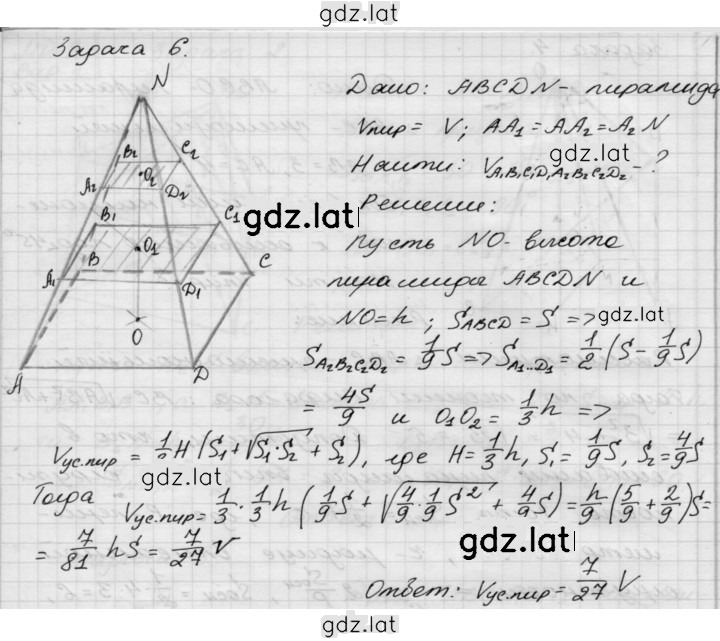 gdz.lat
Задача 6.
N
B2 C2
A2 O2 D2
B1 C1
B O1 C
A1 D1
O
A D
Дано: ABCDN - пирамида
Vпир = V; AA1 = AA2 = A2N
gdz.lat
Найти: VA1B1C1D1A2B2C2D2 - ?
gdz.lat
Решение:
Пусть NO - высота
пирамиды ABCDN и
gdz.lat
NO = h; SABCD = S =>
SA2B2C2D2 = 1/9 S => SA1...D1 = 1/2 (S - 1/9 S)
= 4S/9 и O1O2 = 1/3 h =>
Vус.пир = 1/3 H (S1 + √S1·S2 + S2), где H = 1/3 h, S1 = 1/9 S, S2 = 4/9 S
gdz.lat
Тогда Vус.пир = 1/3 · 1/3 h (1/9 S + √4/9 · 1/9 S² + 4/9 S) = h/9 (5/9 + 2/9) S =
gdz.lat
= 7/81 hS = 7/27 V
Ответ: Vус.пир = 7/27 V
gdz.lat